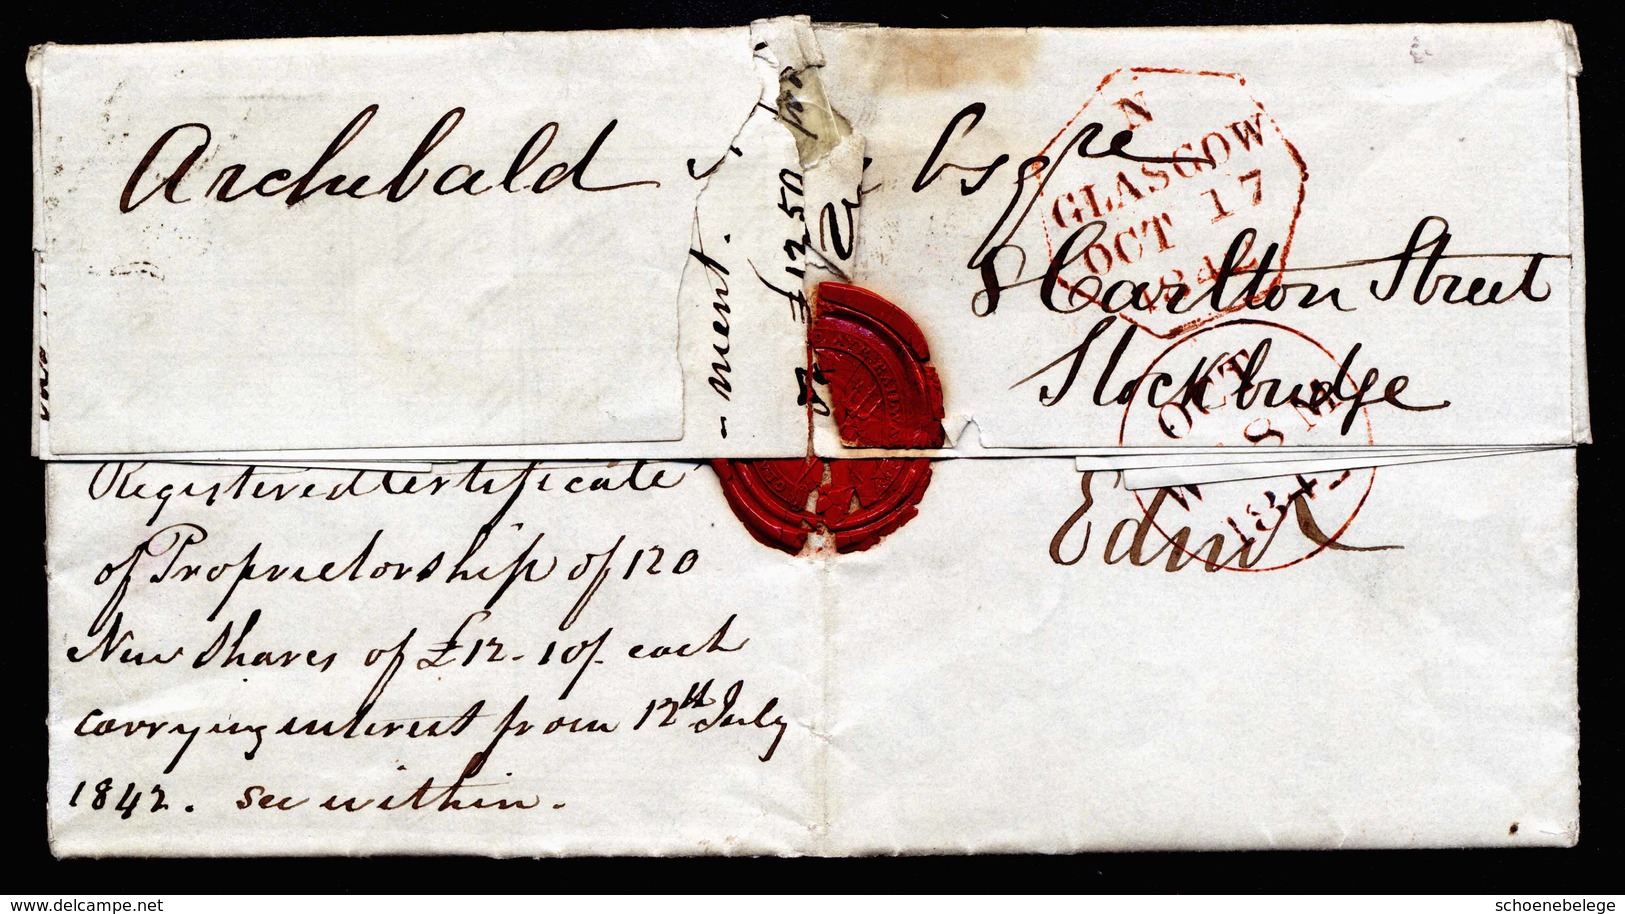 Archibald Esqre
8 Carlton Street
Stockbridge
Edinr
N
GLASGOW
OCT 17
1842
OCT
1842
£1250
- ment.
Registered Certificate
of Proprietorship of 120
New Shares of £12-10/- each
carrying interest from 12th July
1842. see within.
www.delcampe.net
schoenebelege